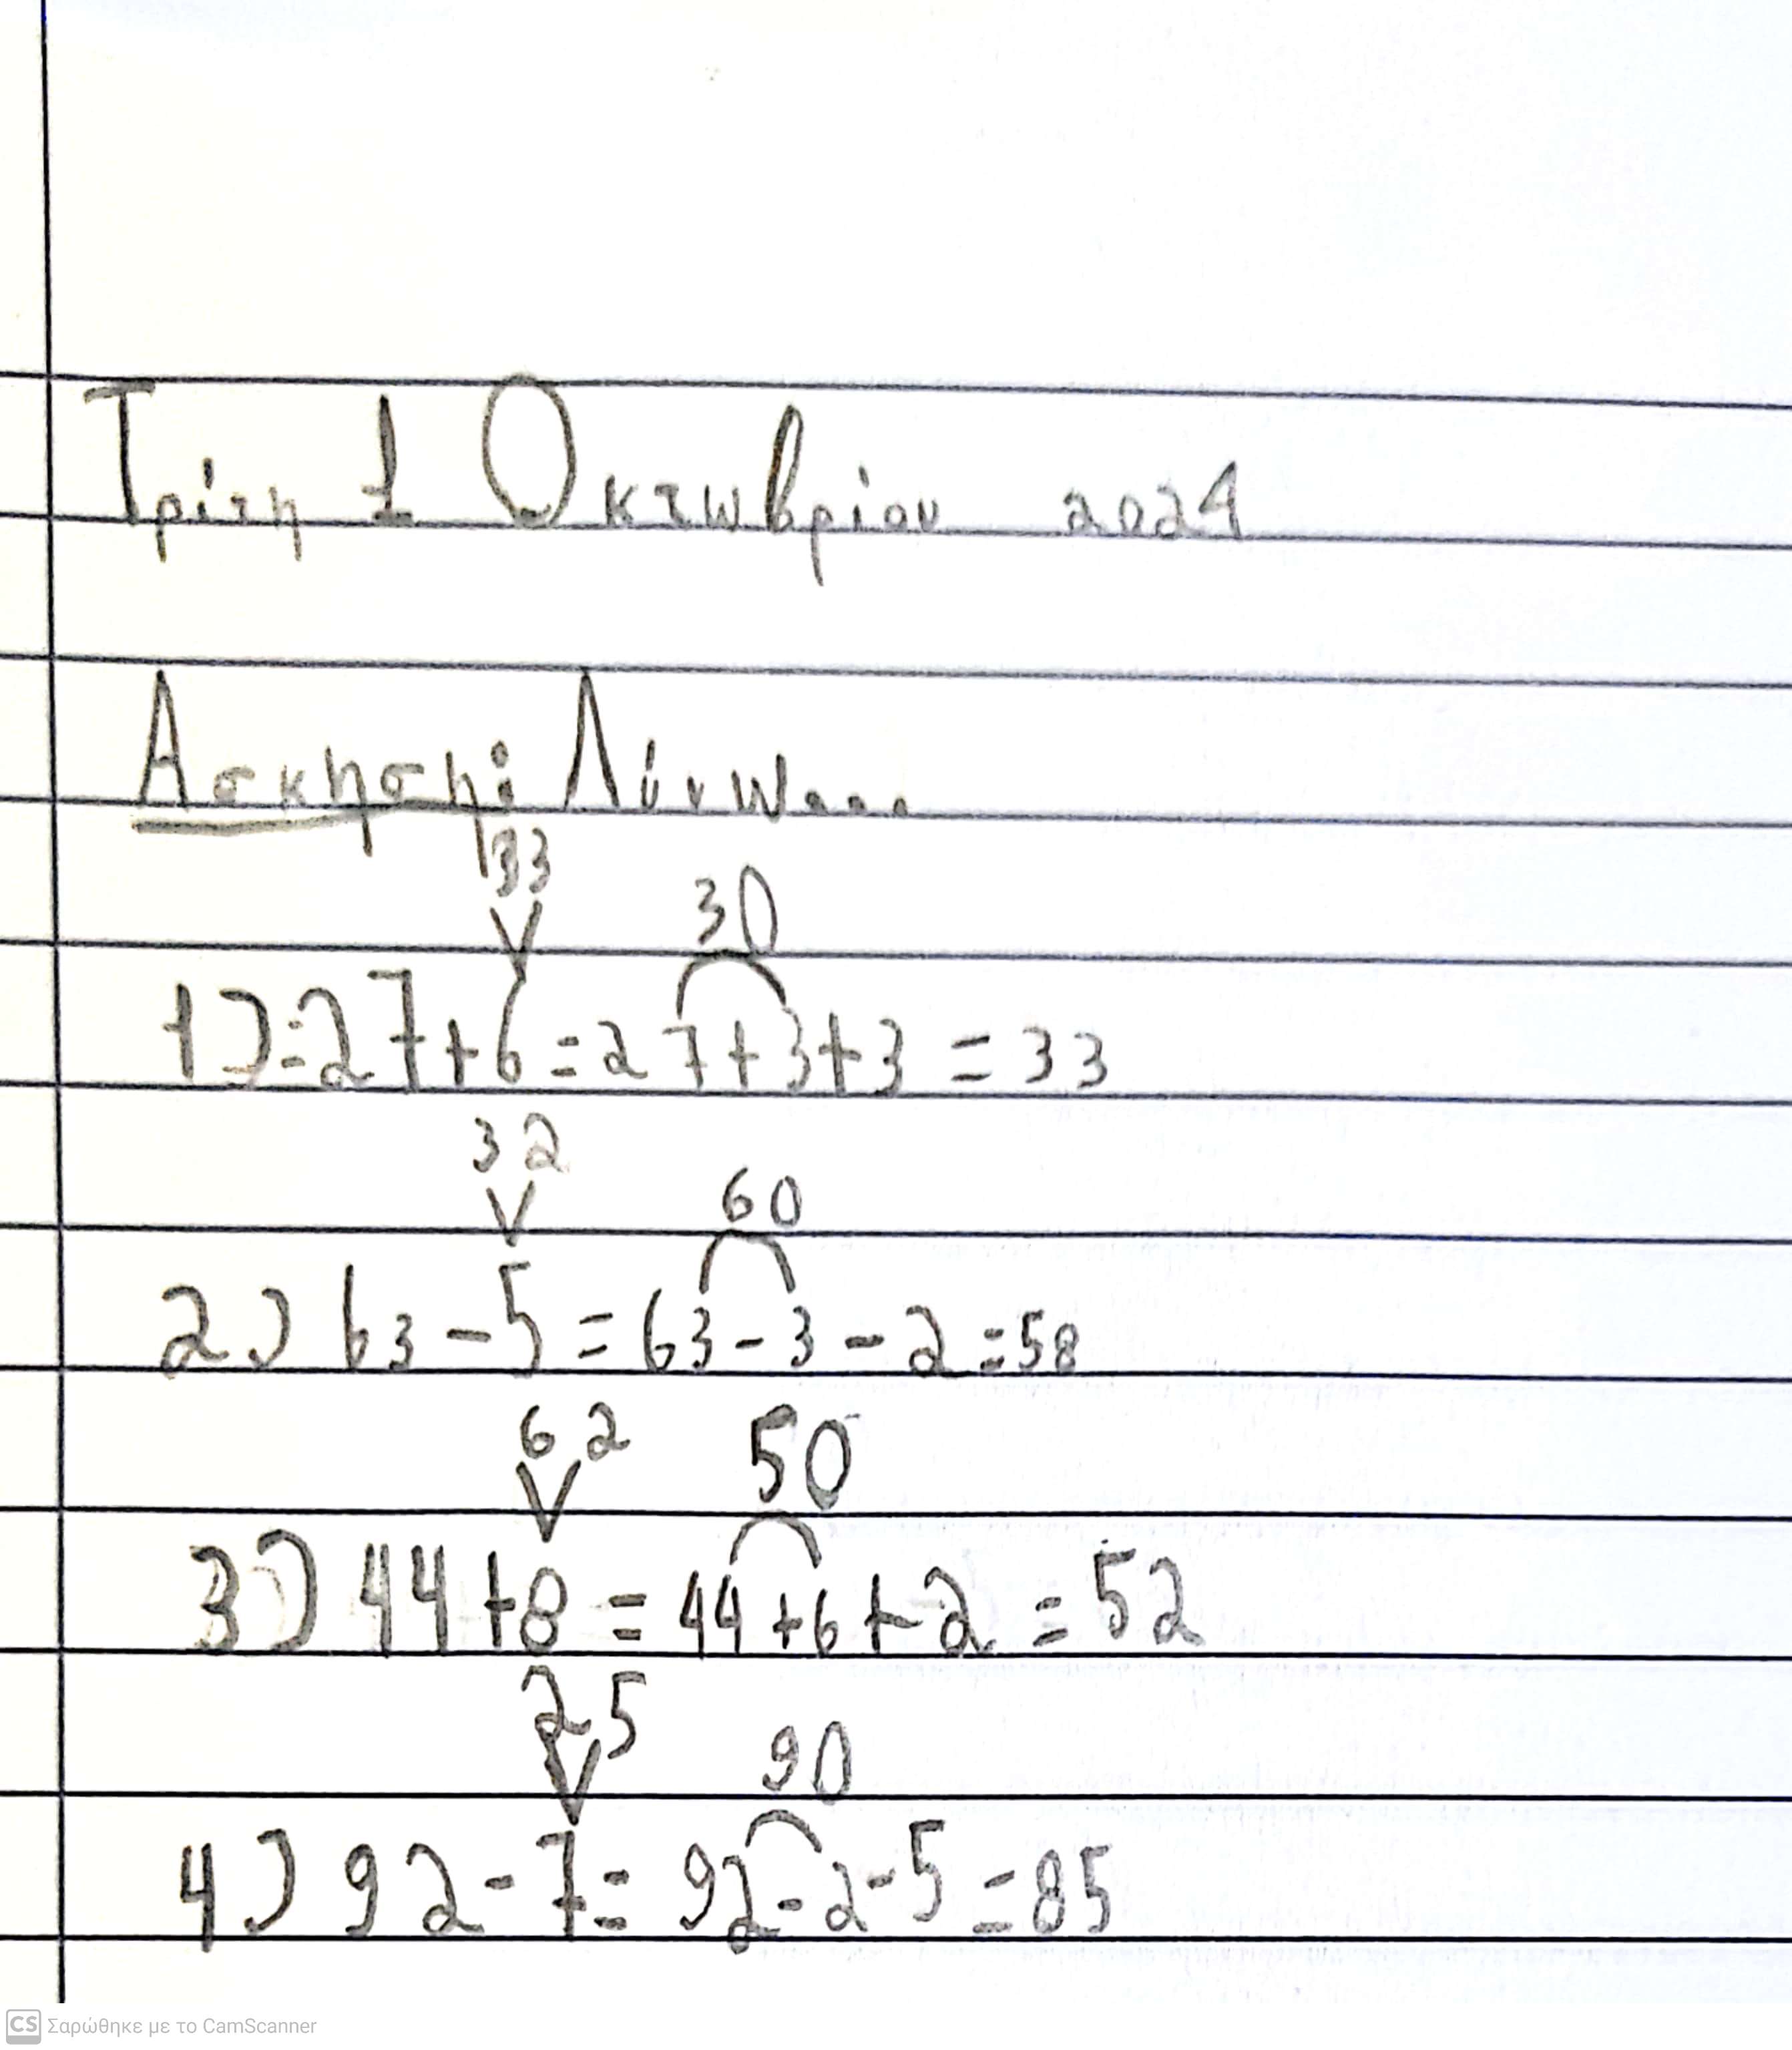 Τρίτη 1 Οκτωβρίου 2024
Ασκηση: Λύνω...
33
30
1)=27+6=27+3+3=33
32
60
2) 63-5=63-3-2=58
62
50
3) 44+8=44+6+2=52
25
90
4) 92-7=92-2-5=85
CS Σαρώθηκε με το CamScanner